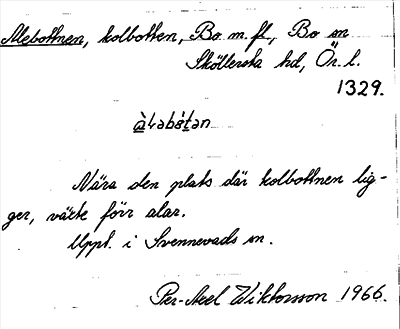 Alebottnen, kolbotten, Bo m. fl., Bo sn
Sköllersta hd, Ör. l.
1329.
àɫəbòtən
Nära den plats där kolbottnen lig-
ger, växte förr alar.
Uppt. i Svennevads sn.
Per-Axel Wiktorsson 1966.